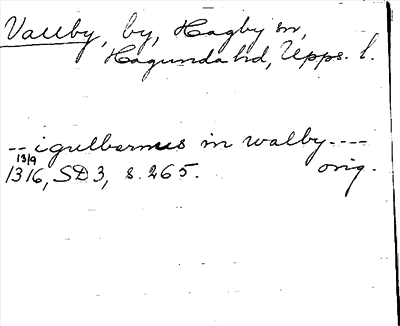 Vallby, by, Hagby sn,
Hagunda hd, Upps. l.
-- igulbernus in walby ----
13/9
1316, SD 3, s. 265. orig.